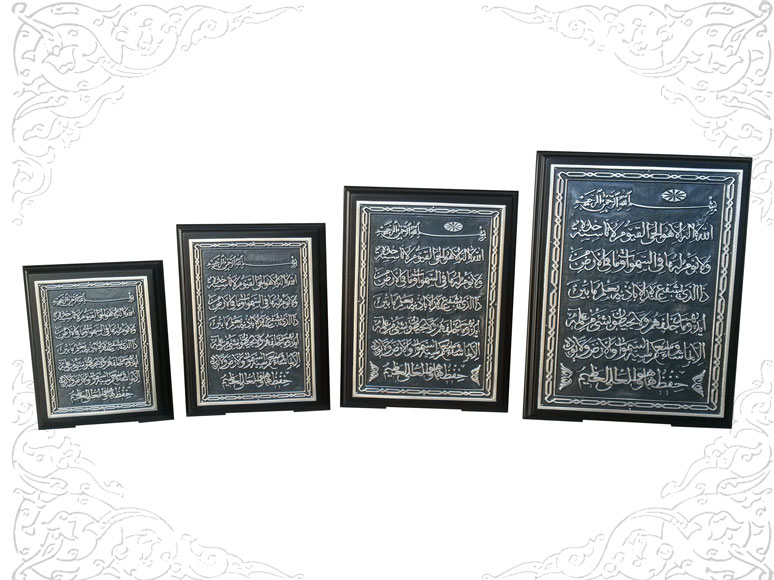 بسم الله الرحمن الرحيم
الله لا اله الا هو الحي القيوم لا تاخذه سنة
ولا نوم له ما في السموات وما في الارض من
ذا الذي يشفع عنده الا باذنه يعلم ما بين
ايديهم وما خلفهم ولا يحيطون بشيء من علمه
الا بما شاء وسع كرسيه السموات والارض ولا يؤده
حفظهما وهو العلي العظيم
بسم الله الرحمن الرحيم
الله لا اله الا هو الحي القيوم لا تاخذه سنة
ولا نوم له ما في السموات وما في الارض من
ذا الذي يشفع عنده الا باذنه يعلم ما بين
ايديهم وما خلفهم ولا يحيطون بشيء من علمه
الا بما شاء وسع كرسيه السموات والارض ولا يؤده
حفظهما وهو العلي العظيم
بسم الله الرحمن الرحيم
الله لا اله الا هو الحي القيوم لا تاخذه سنة
ولا نوم له ما في السموات وما في الارض من
ذا الذي يشفع عنده الا باذنه يعلم ما بين
ايديهم وما خلفهم ولا يحيطون بشيء من علمه
الا بما شاء وسع كرسيه السموات والارض ولا يؤده
حفظهما وهو العلي العظيم
بسم الله الرحمن الرحيم
الله لا اله الا هو الحي القيوم لا تاخذه سنة
ولا نوم له ما في السموات وما في الارض من
ذا الذي يشفع عنده الا باذنه يعلم ما بين
ايديهم وما خلفهم ولا يحيطون بشيء من علمه
الا بما شاء وسع كرسيه السموات والارض ولا يؤده
حفظهما وهو العلي العظيم